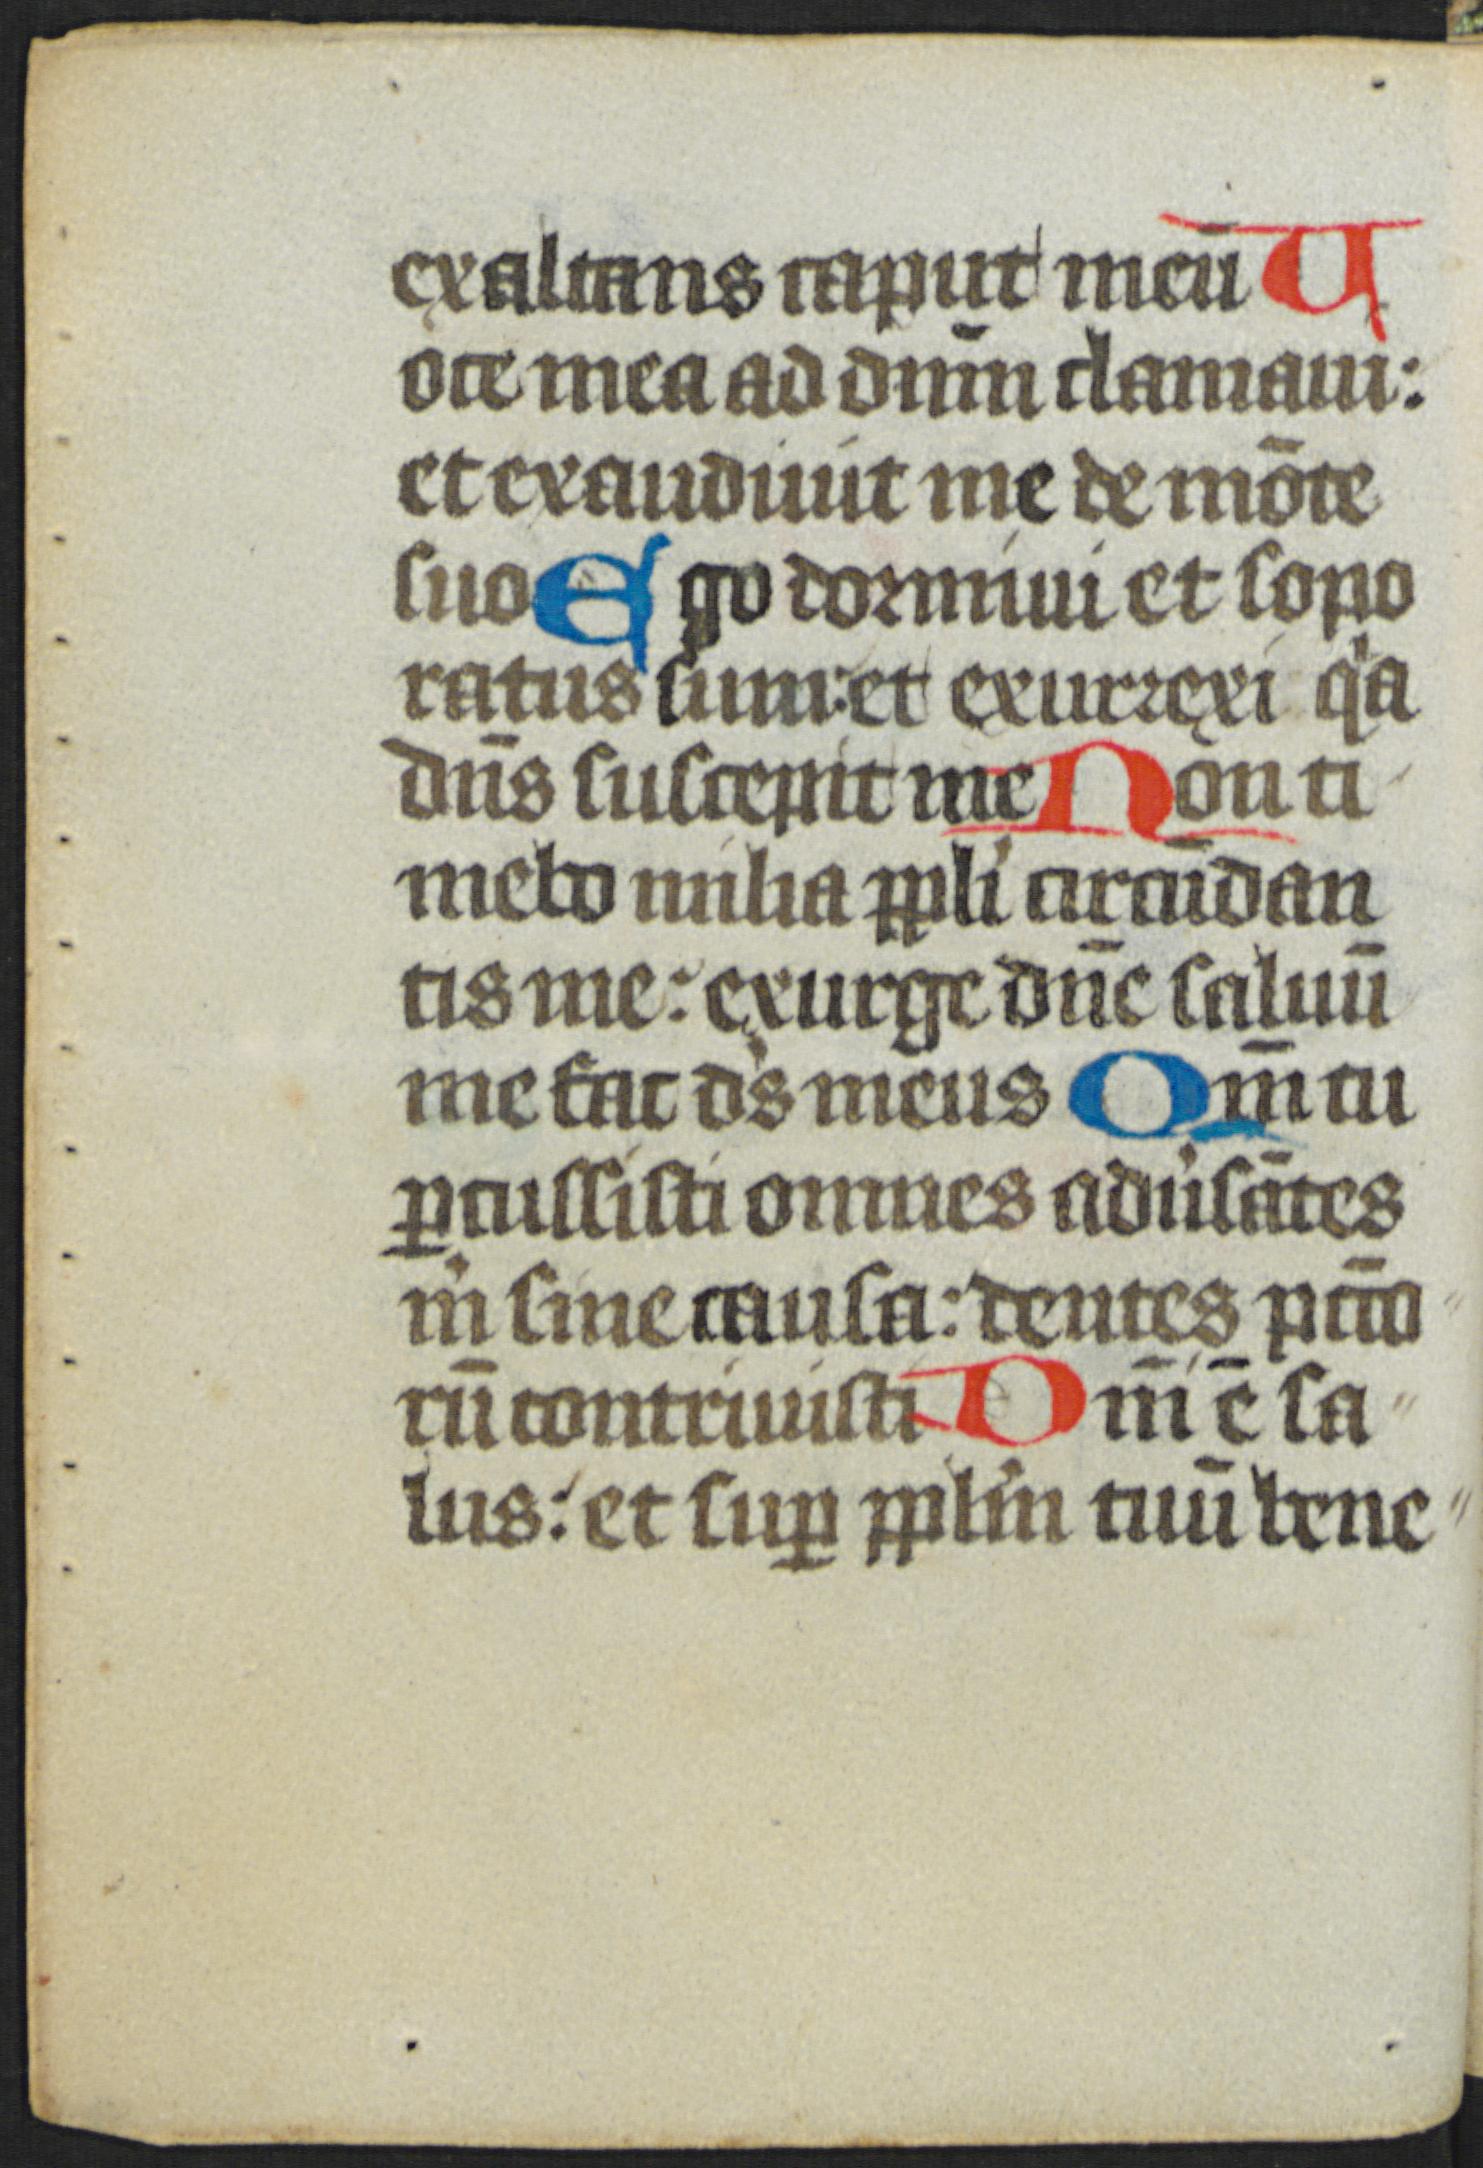 exaltans caput meū U
oce mea ad dnm̄ clamaui:
et exaudiuit me de mōte
suo Ego dormiui et sopo
ratus sum: et exurrexi qͥa
dn̄s suscepit me Non ti
mebo milia ppli circūdan
tis me: exurge dn̄e saluū
me fac ds meus Qm̄ tu
ꝑcussisti omnes adu'sātes
m̍ sine causa: dentes pctō
rū contriuisti Dm̄i ē sa
lus: et suꝑ pplm̄ tuū bene